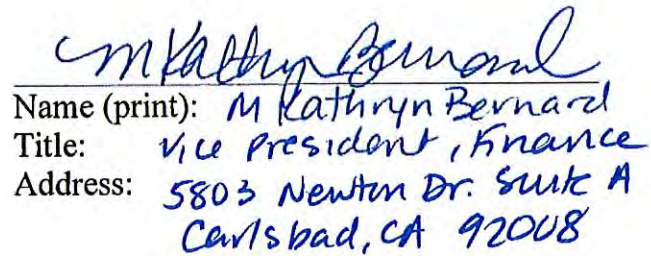 M Kathryn Bernard
Name (print): M Kathryn Bernard
Title: Vice President, Finance
Address: 5803 Newton Dr. Suite A
Carlsbad, CA 92008